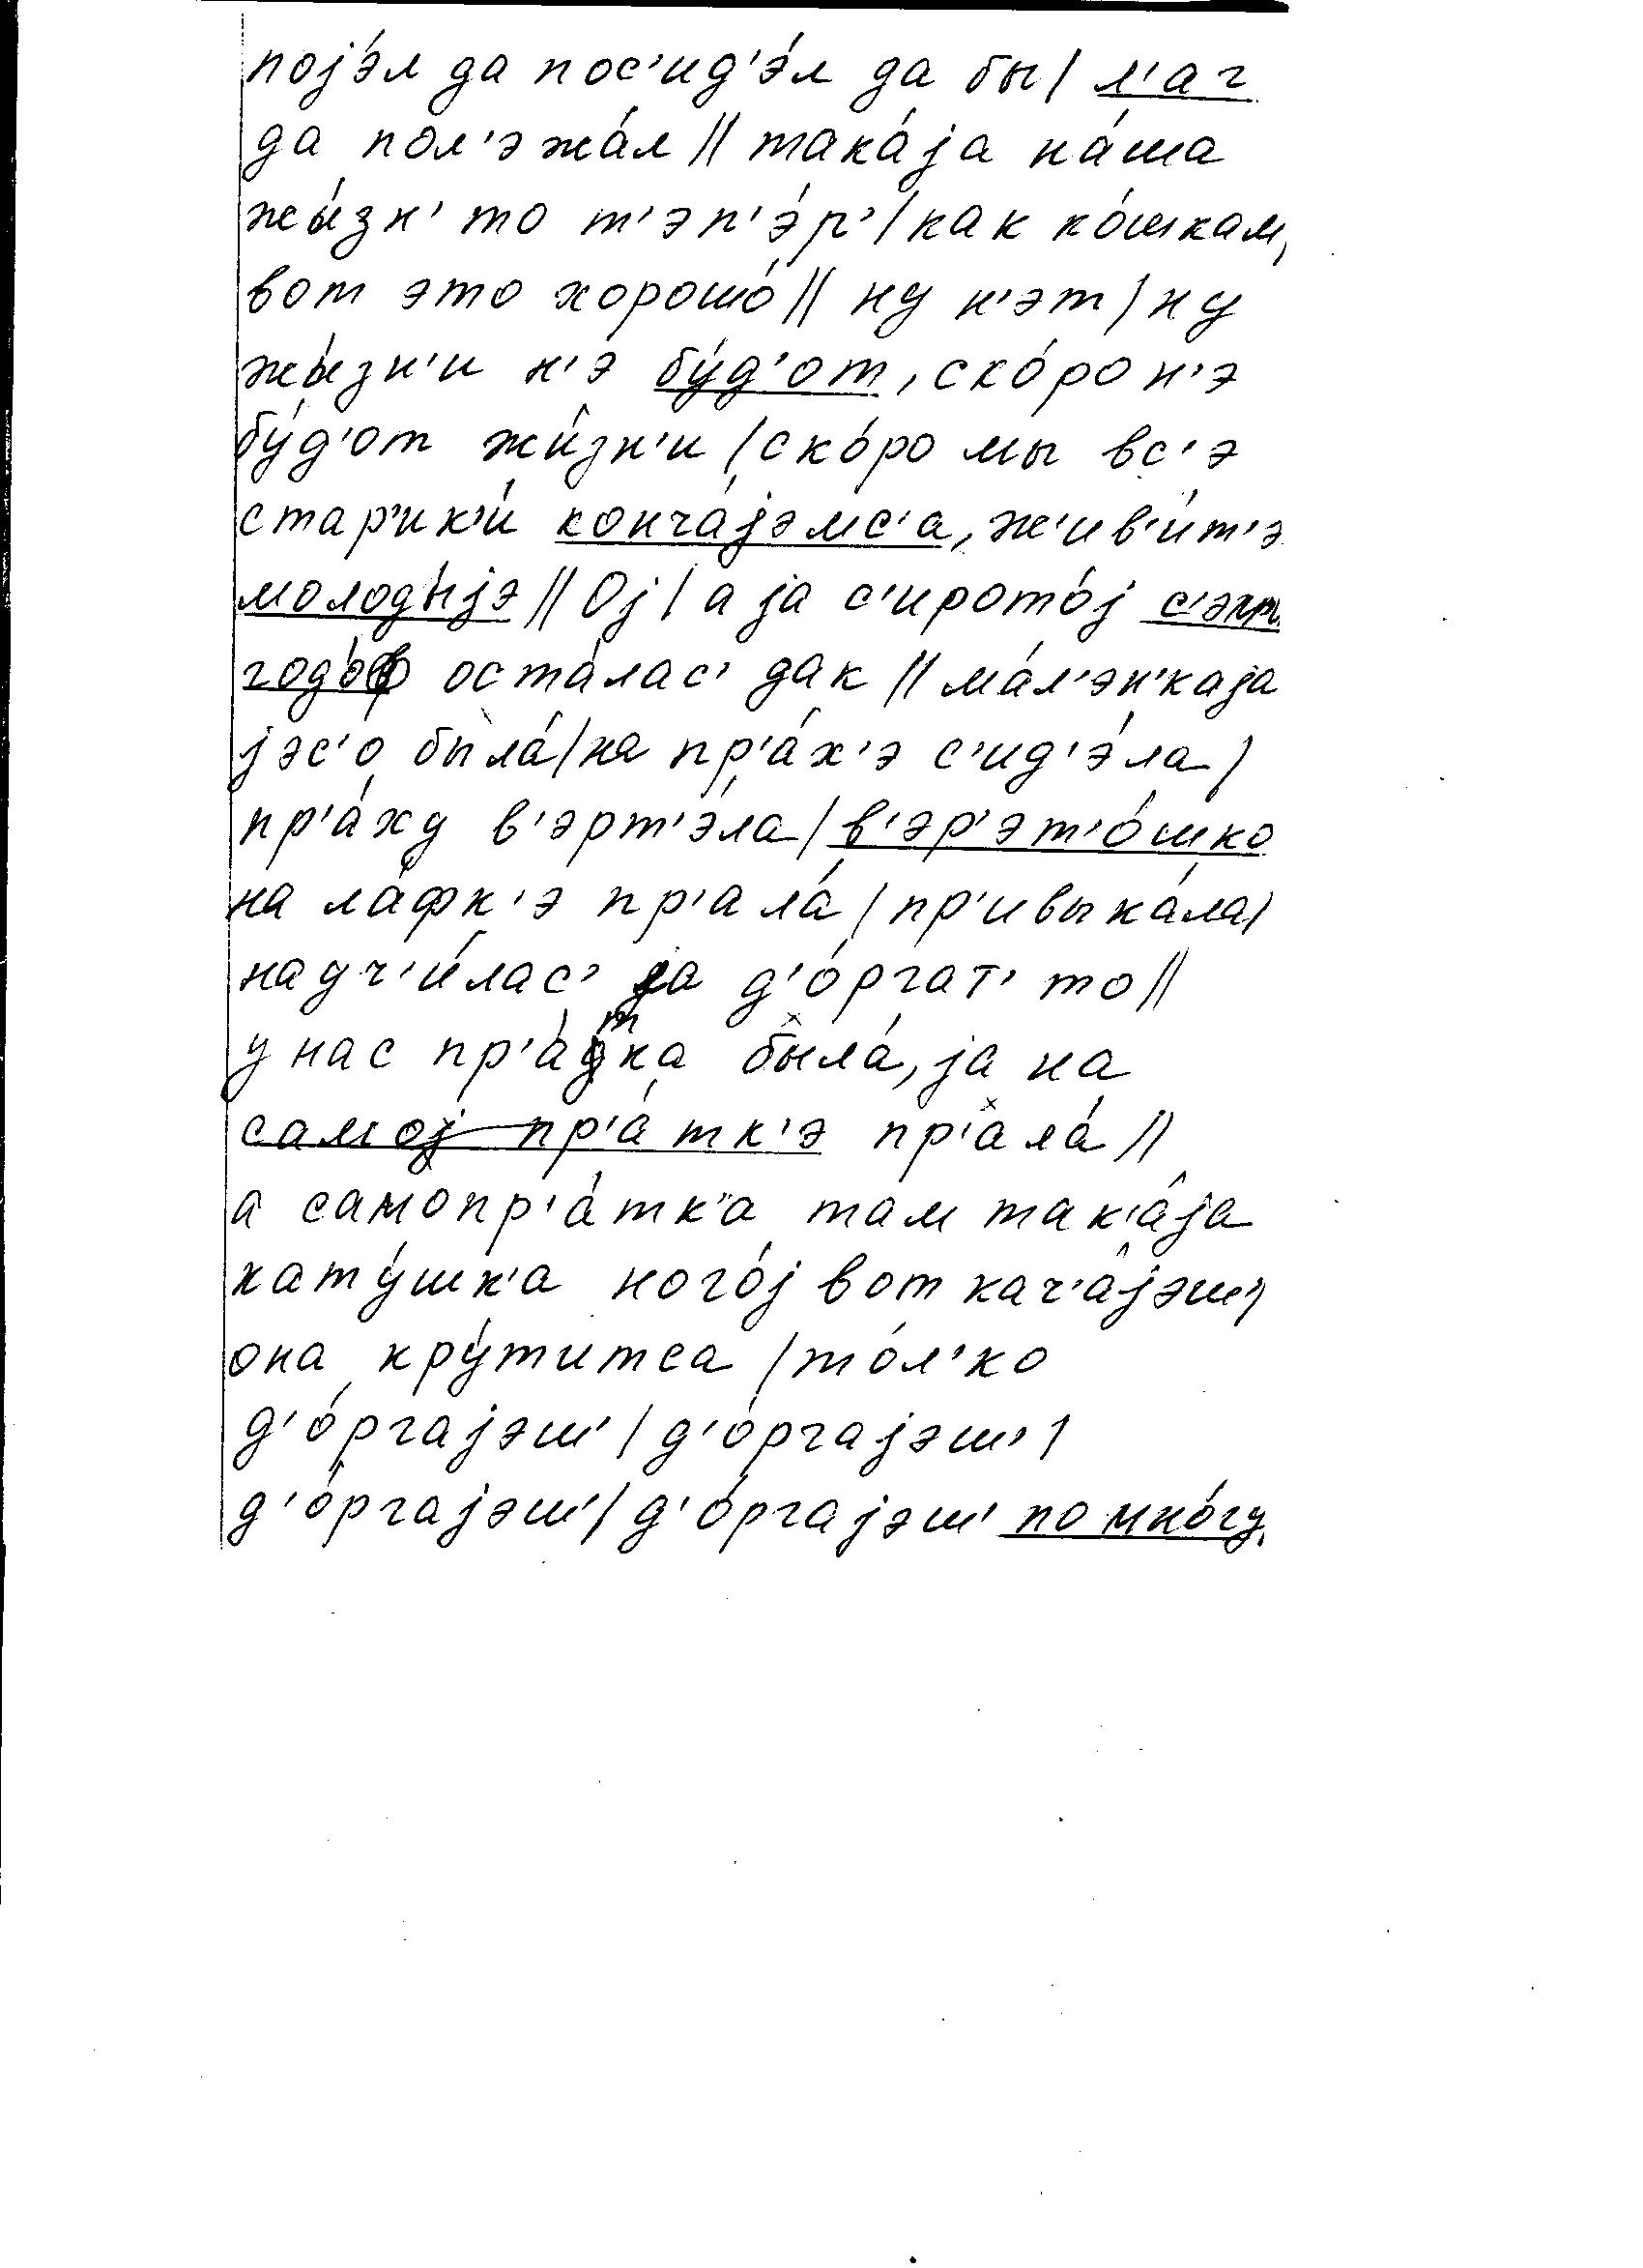 појэ́л да пос'ид'э́л да бы/ л'аг
да пол'эжа́л // така́ја на́ша
жы́зн' то т'эп'э́р' / как ко́шкам,
вот это хорошо́ // ну н'эт / ну
жы́зн'и н'э бу́д'от, ско́ро н'э
бу́д'от жи́зн'и / ско́ро мы вс'э
стар'ик'и́ конча́јэмс'а, ж'ив'и́т'э
молоды́јэ // Ој / а ја с'ирото́ј
оста́лас' дак // ма́л'эн'каја
јэс'о была́ / на пр'а́х'э с'ид'э́ла /
пр'а́ху в'эрт'э́ла / в'эр'эт'о́шко
на ла́фк'э пр'ала́ / пр'ивыка́ла /
науч'и́лас' да д'о́ргат' то //
у нас пр'а́тка была́, ја на
самој пр'а́тк'э пр'ала́ //
а самопр'а́тк'а там так'а́ја
кату́шк'а ного́ј вот кач'а́јэш' /
она кру́титса / то́л'ко
д'о́ргајэш' / д'о́ргајэш' /
д'о́ргајэш' / д'о́ргајэш' по мно́гу.